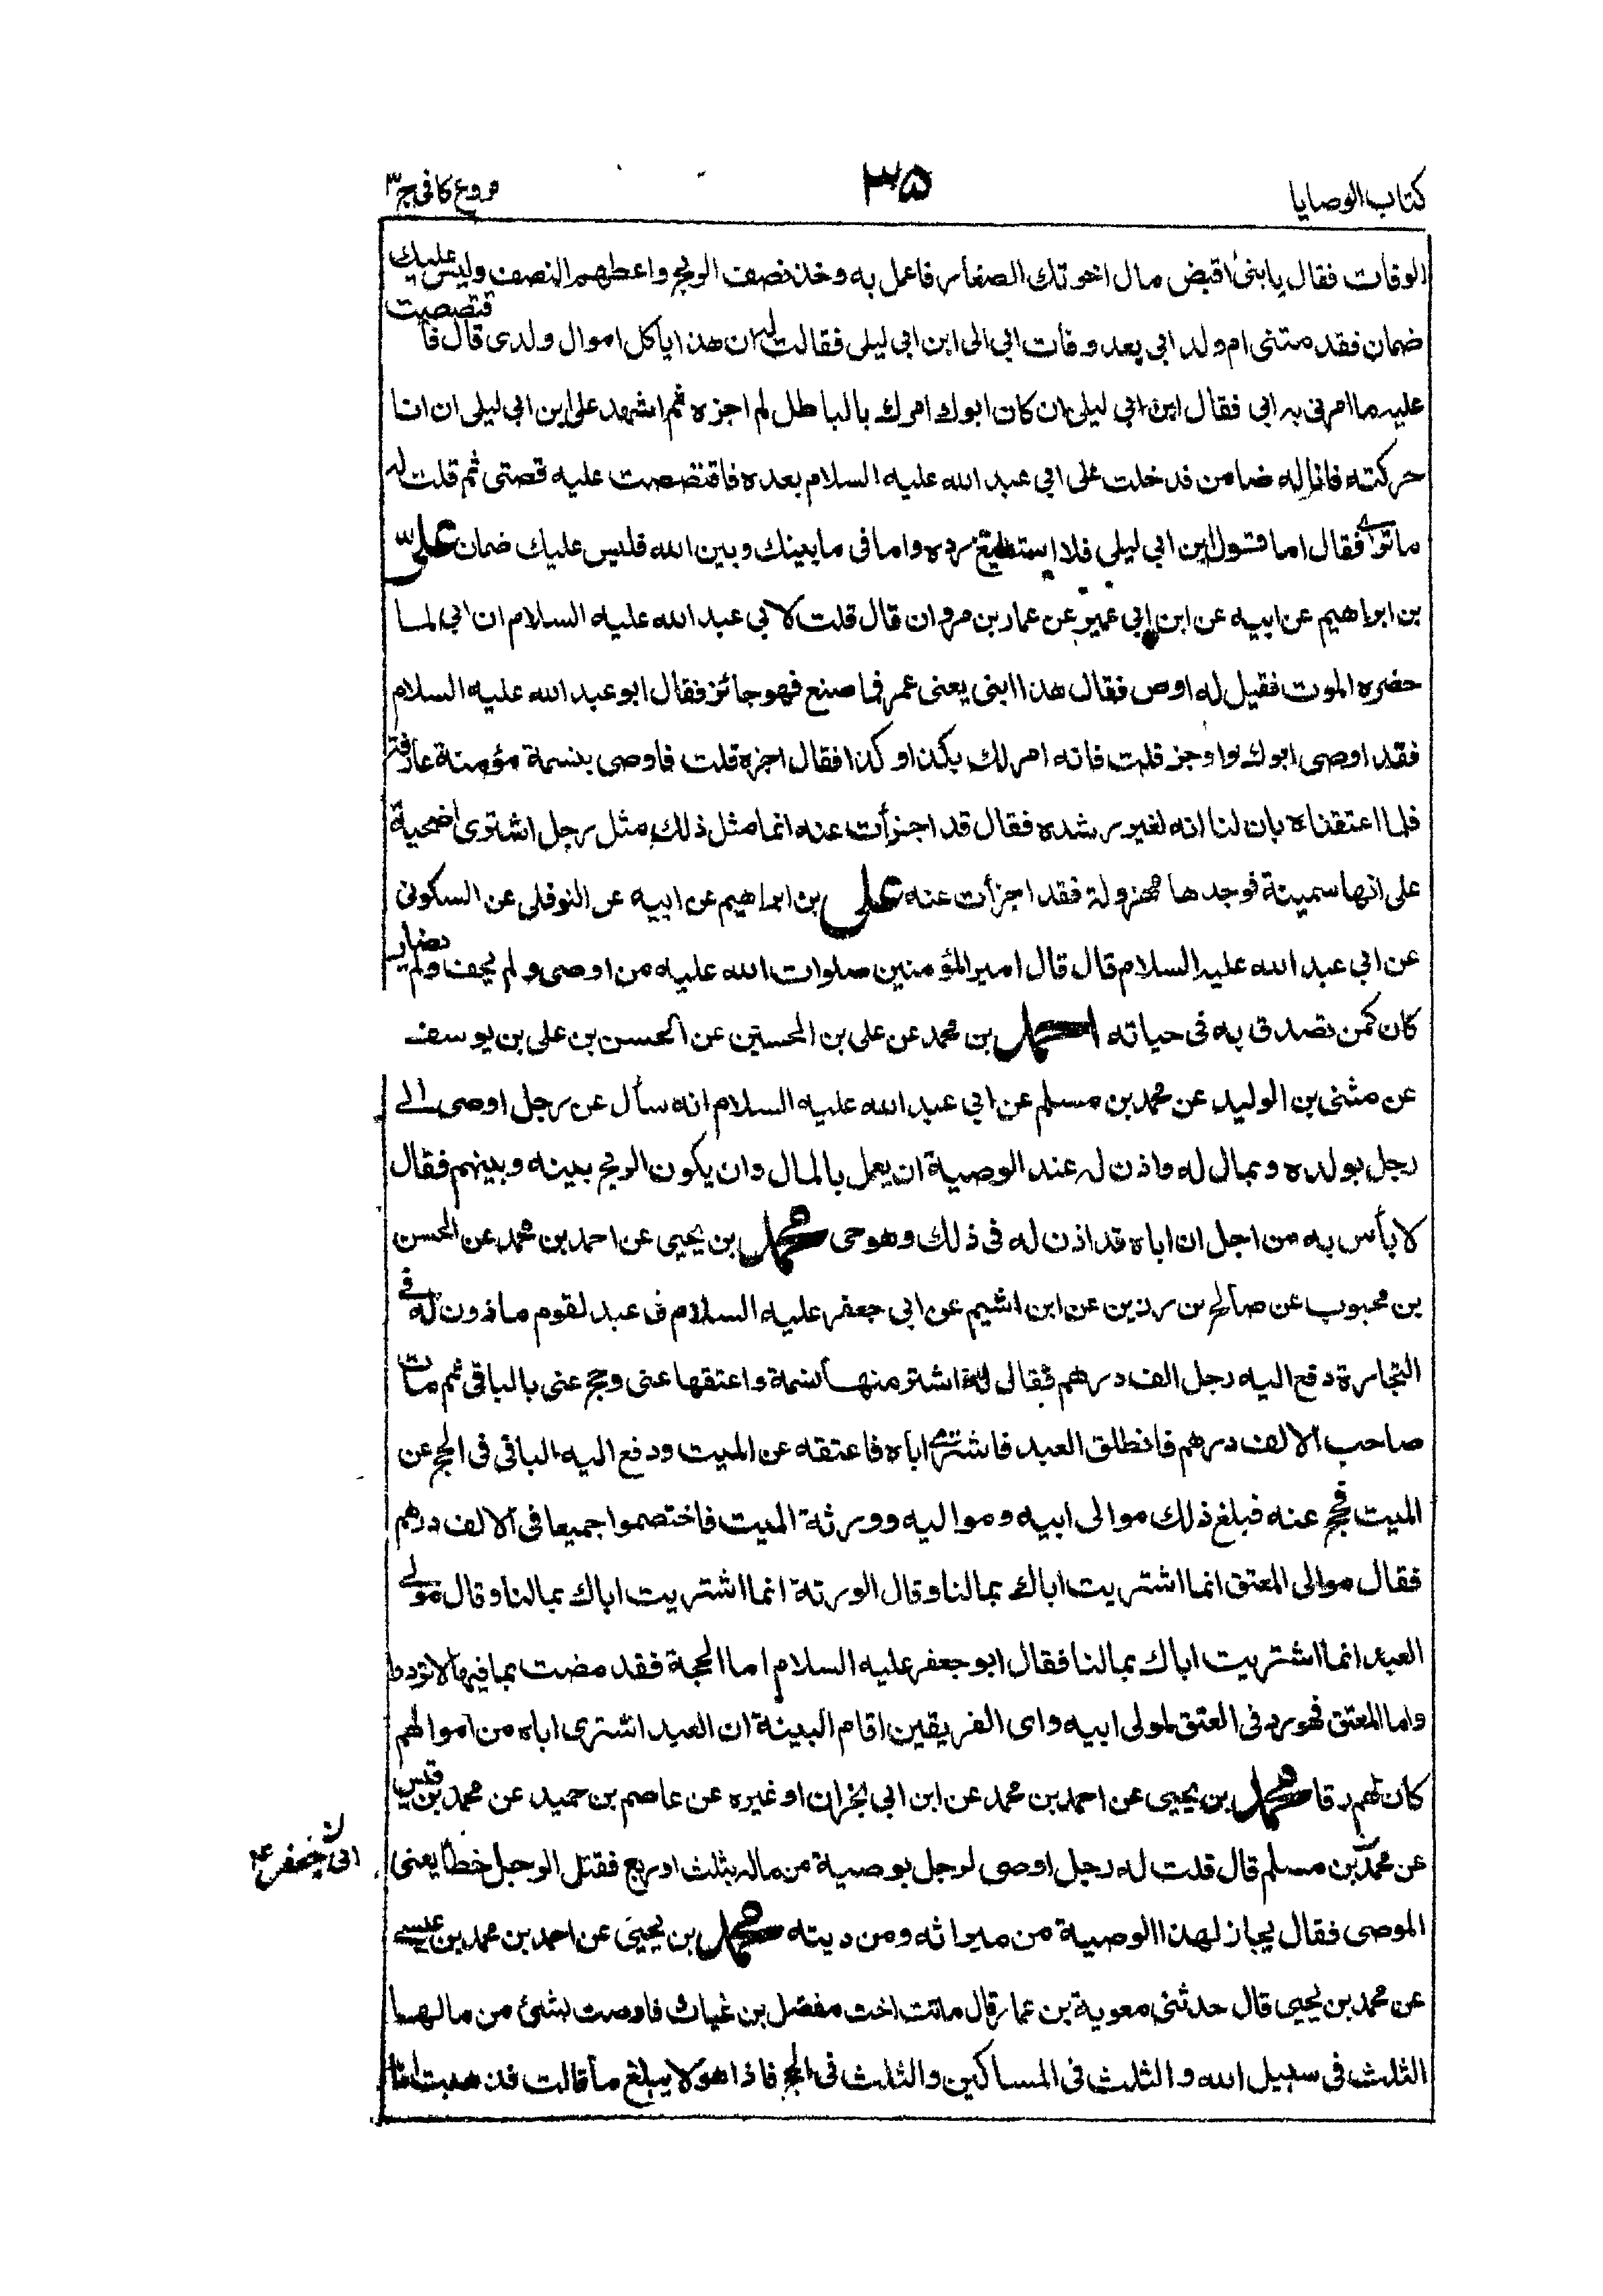 كتاب الوصايا
٣٥
فروع كافى ج٣
الوفات فقال يابنى اقبض مال اخوتك الصغار فاعمل به وخذ نصف الربح واعطهم النصف وليس عليك
ضمان فقدمتنى ام ولد ابى بعد وفات ابى الى ابن ابى ليلى فقالت له ان هذا ياكل اموال ولدى قال فاقتصصت
عليه ما امرنى به ابى فقال ابن ابى ليلى ان كان ابوك امرك بالباطل لم اجزه ثم اشهد على ابن ابى ليلى ان انا
حركته فانا له ضامن فدخلت على ابى عبد الله عليه السلام بعده فاقتصصت عليه قصتى ثم قلت له
ما ترى فقال اما قول ابن ابى ليلى فلا استطيع رده واما فى ما بينك وبين الله فليس عليك ضمان على
بن ابراهيم عن ابيه عن ابن ابى عمير عن عمار بن مروان قال قلت لابى عبد الله عليه السلام ان ابى لما
حضره الموت فقيل له اوص فقال هذا ابنى يعنى عمر فما صنع فهو جائز فقال ابو عبد الله عليه السلام
فقد اوصى ابوك واوجز قلت فانه امر لك بكذا وكذا فقال اجزه قلت فاوصى بنسمة مؤمنة عارفة
فلما اعتقناه بان لنا انه لغير رشده فقال قد اجزأت عنه انما مثل ذلك مثل رجل اشترى اضحية
على انها سمينة فوجدها مهزولة فقد اجزأت عنه على بن ابراهيم عن ابيه عن النوفلى عن السكونى
عن ابى عبد الله عليه السلام قال قال امير المؤمنين صلوات الله عليه من اوصى ولم يحف ولم يضار
كان كمن تصدق به فى حياته احمد بن محمد عن على بن الحسين عن الحسن بن على بن يوسف
عن مثنى بن الوليد عن محمد بن مسلم عن ابى عبد الله عليه السلام انه سأل عن رجل اوصى الى
رجل بولده وبمال له واذن له عند الوصية ان يعمل بالمال وان يكون الربح بينه وبينهم فقال
لا بأس به من اجل ان اباه قد اذن له فى ذلك وهو حى محمد بن يحيى عن احمد بن محمد عن الحسن
بن محبوب عن صالح بن رزين عن ابن اشيم عن ابى جعفر عليه السلام فى عبد لقوم ماذون له فى
التجارة دفع اليه رجل الف درهم فقال له اشتر منها نسمة واعتقها عنى وحج عنى بالباقى ثم مات
صاحب الالف درهم فانطلق العبد فاشترى اباه فاعتقه عن الميت ودفع اليه الباقى فى الحج عن
الميت فحج عنه فبلغ ذلك موالى ابيه ومواليه وورثة الميت فاختصموا جميعا فى الالف درهم
فقال موالى المعتق انما اشتريت اباك بمالنا وقال الورثة انما اشتريت اباك بمالنا وقال موالى
العبد انما اشتريت اباك بمالنا فقال ابو جعفر عليه السلام اما الحجة فقد مضت بما فيها لا ترد
واما المعتق فهو رد فى العتق لمولى ابيه واى الفريقين اقام البينة ان العبد اشترى اباه من اموالهم
كان لهم رقا محمد بن يحيى عن احمد بن محمد عن ابن ابى نجران او غيره عن عاصم بن حميد عن محمد بن قيس
عن محمد بن مسلم قال قلت له رجل اوصى لرجل بوصية من ماله بثلث او ربع فقتل الرجل خطأ يعنى
ابى جعفر ع
الموصى فقال يجاز لهذا الوصية من ميراثه ومن ديته محمد بن يحيى عن احمد بن محمد بن عيسى
عن محمد بن يحيى قال حدثنى معوية بن عمار قال ماتت اخت مفضل بن غياث فاوصت بشئ من مالها
الثلث فى سبيل الله والثلث فى المساكين والثلث فى الحج فاذا هو لا يبلغ ما قالت فذهبت انا